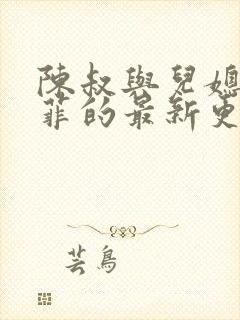 陳叔與兒媳
菲的最新更
芸鳥